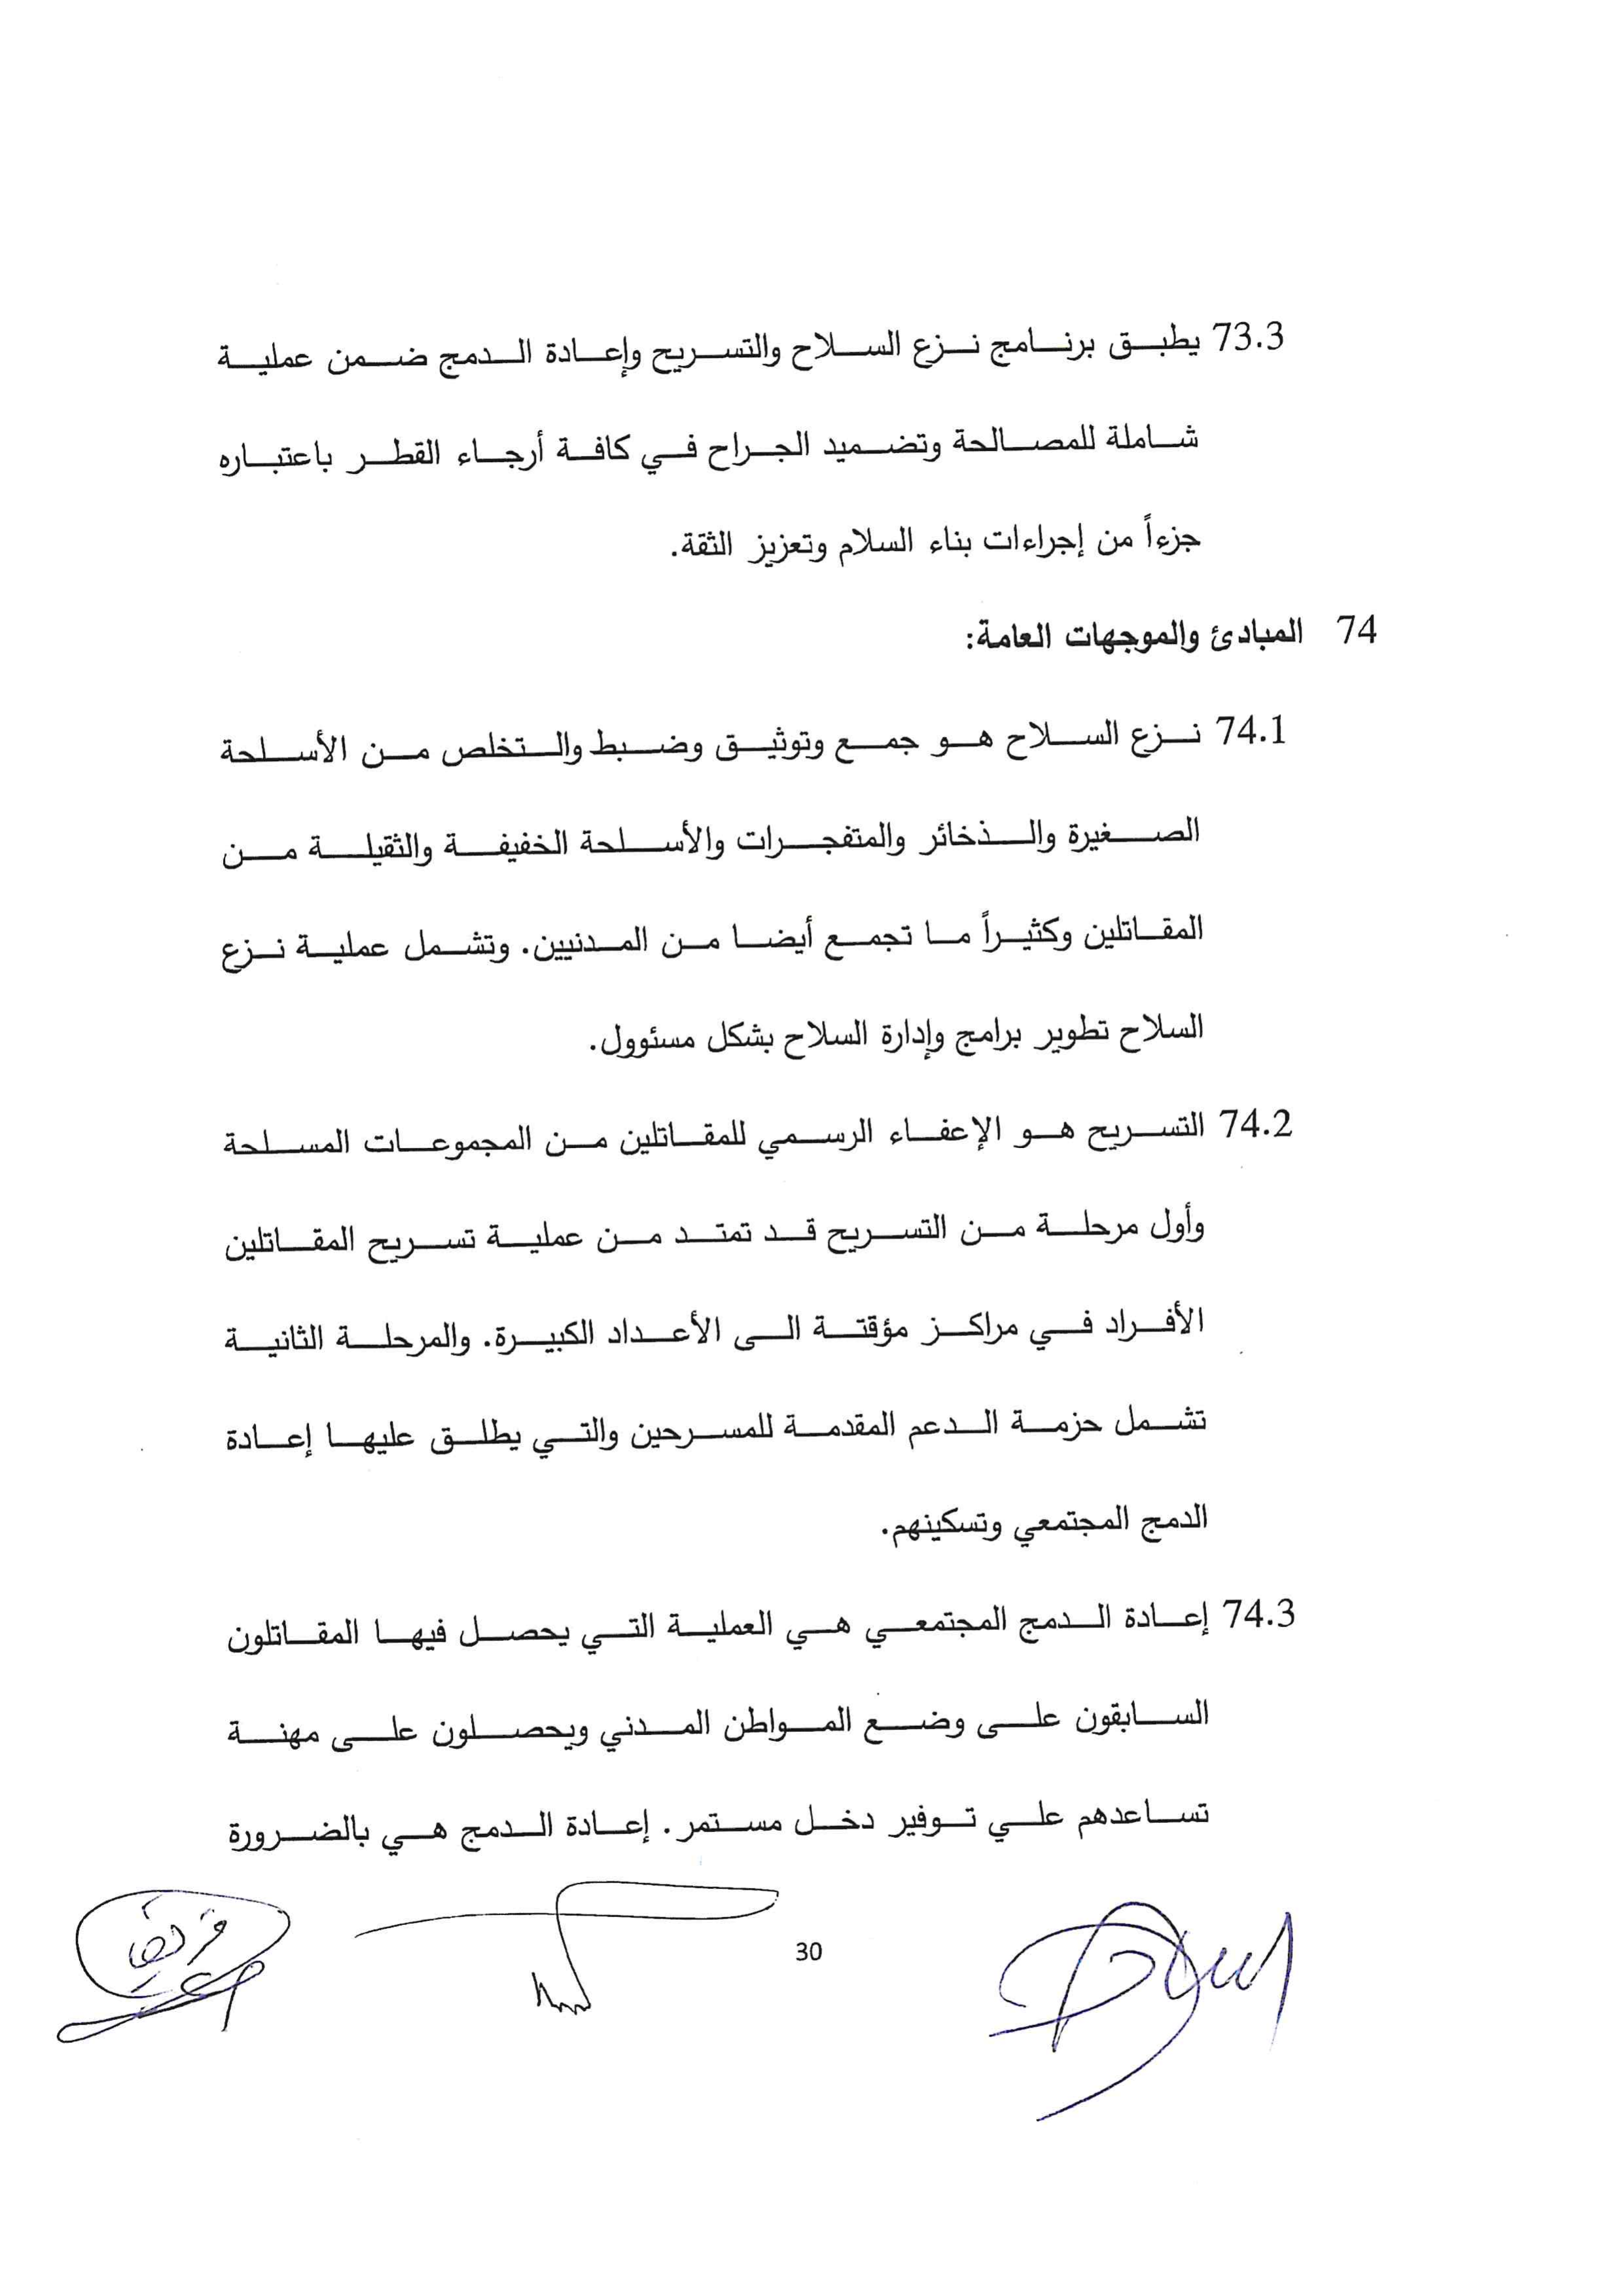 73.3 يطبق برنامج نزع السلاح والتسريح وإعادة الدمج ضمن عملية
شاملة للمصالحة وتضميد الجراح في كافة أرجاء القطر باعتباره
جزءاً من إجراءات بناء السلام وتعزيز الثقة.
74 المبادئ والموجهات العامة:
74.1 نزع السلاح هو جمع وتوثيق وضبط والتخلص من الأسلحة
الصغيرة والذخائر والمتفجرات والأسلحة الخفيفة والثقيلة من
المقاتلين وكثيراً ما تجمع أيضا من المدنيين. وتشمل عملية نزع
السلاح تطوير برامج وإدارة السلاح بشكل مسئوول.
74.2 التسريح هو الإعفاء الرسمي للمقاتلين من المجموعات المسلحة
وأول مرحلة من التسريح قد تمتد من عملية تسريح المقاتلين
الأفراد في مراكز مؤقتة الى الأعداد الكبيرة. والمرحلة الثانية
تشمل حزمة الدعم المقدمة للمسرحين والتي يطلق عليها إعادة
الدمج المجتمعي وتسكينهم.
74.3 إعادة الدمج المجتمعي هي العملية التي يحصل فيها المقاتلون
السابقون على وضع المواطن المدني ويحصلون على مهنة
تساعدهم علي توفير دخل مستمر. إعادة الدمج هي بالضرورة
30